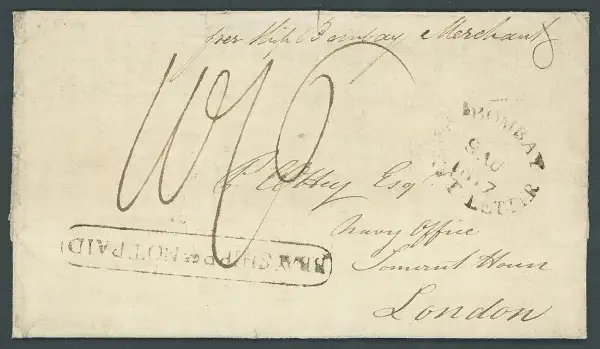 per Ship Bombay Merchant
BOMBAY
9 AU
1817
T LETTER
Esqr
Navy Office
Somerset House
London
BBAY SHIPP & NOT PAID